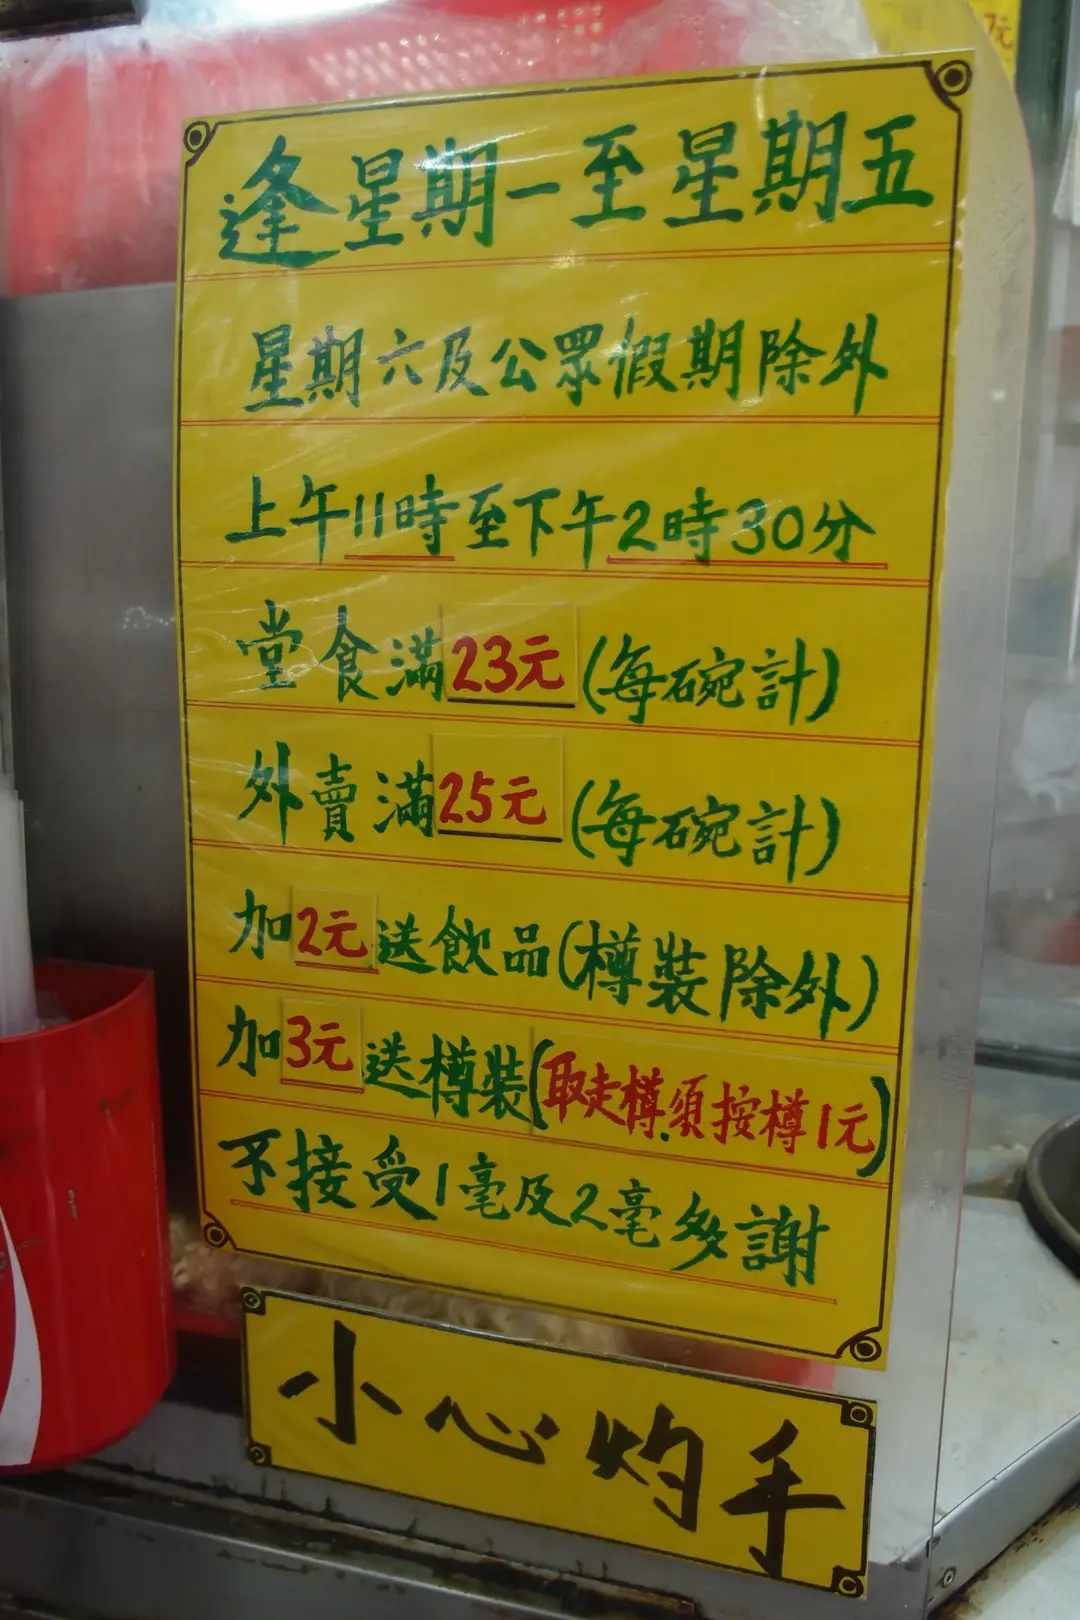 逢星期一至星期五
星期六及公眾假期除外
上午11時至下午2時30分
堂食滿23元(每碗計)
外賣滿25元(每碗計)
加2元送飲品(樽裝除外)
加3元送樽裝(取走樽須按樽1元)
不接受1毫及2毫多謝
小心灼手
7元